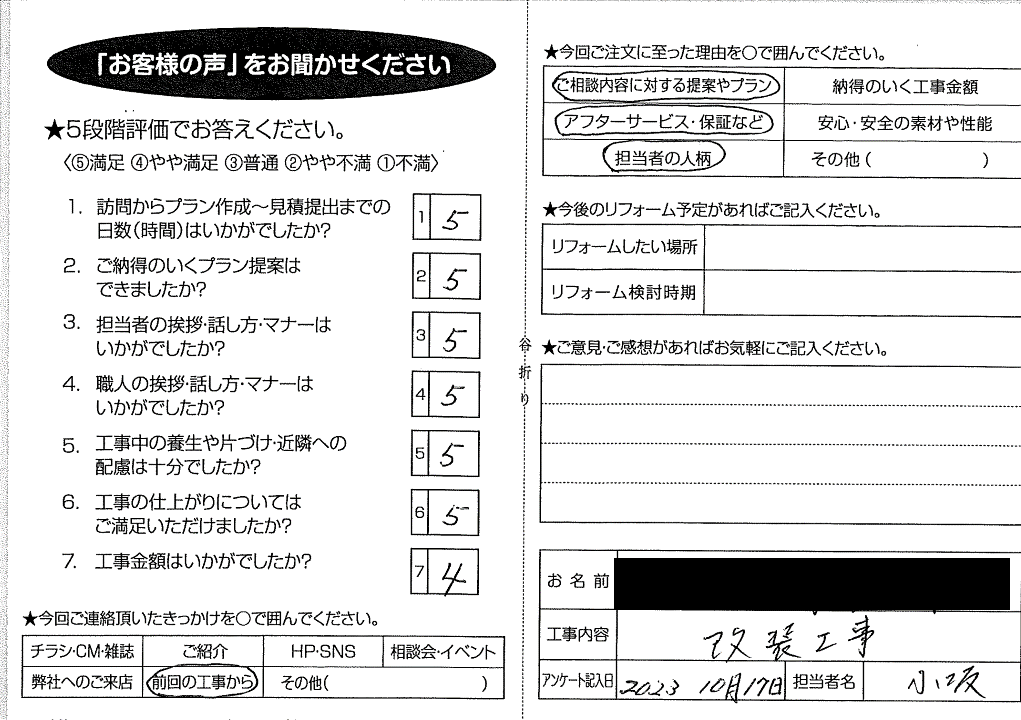 「お客様の声」をお聞かせください
★5段階評価でお答えください。
〈⑤満足 ④やや満足 ③普通 ②やや不満 ①不満〉
1. 訪問からプラン作成～見積提出までの
日数(時間)はいかがでしたか?
1 5
2. ご納得のいくプラン提案は
できましたか?
2 5
3. 担当者の挨拶・話し方・マナーは
いかがでしたか?
3 5
4. 職人の挨拶・話し方・マナーは
いかがでしたか?
4 5
5. 工事中の養生や片づけ・近隣への
配慮は十分でしたか?
5 5
6. 工事の仕上がりについては
ご満足いただけましたか?
6 5
7. 工事金額はいかがでしたか?
7 4
★今回ご連絡頂いたきっかけを○で囲んでください。
チラシ・CM・雑誌 ご紹介 HP・SNS 相談会・イベント
弊社へのご来店 前回の工事から その他( )
谷折り
★今回ご注文に至った理由を○で囲んでください。
ご相談内容に対する提案やプラン 納得のいく工事金額
アフターサービス・保証など 安心・安全の素材や性能
担当者の人柄 その他( )
★今後のリフォーム予定があればご記入ください。
リフォームしたい場所
リフォーム検討時期
★ご意見・ご感想があればお気軽にご記入ください。
お名前
工事内容 改装工事
アンケート記入日 2023 10月17日 担当者名 小坂